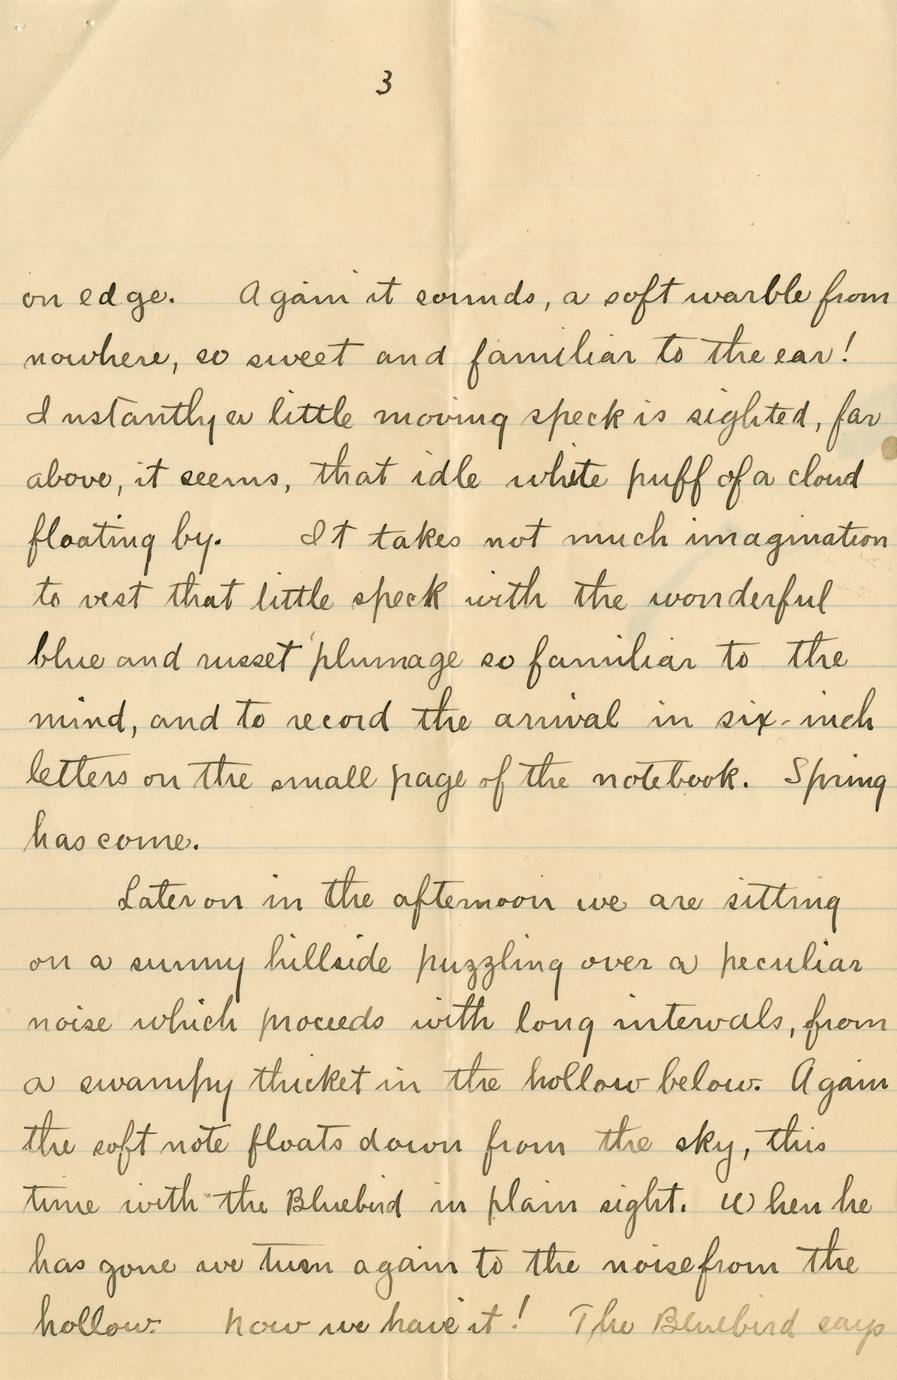 3
on edge. Again it sounds, a soft warble from
nowhere, so sweet and familiar to the ear!
Instantly a little moving speck is sighted, far
above, it seems, that idle white puff of a cloud
floating by. It takes not much imagination
to vest that little speck with the wonderful
blue and russet plumage so familiar to the
mind, and to record the arrival in six-inch
letters on the small page of the notebook. Spring
has come.
Later on in the afternoon we are sitting
on a sunny hillside puzzling over a peculiar
noise which proceeds with long intervals, from
a swampy thicket in the hollow below. Again
the soft note floats down from the sky, this
time with the Bluebird in plain sight. When he
has gone we turn again to the noise from the
hollow. Now we have it! The Bluebird says